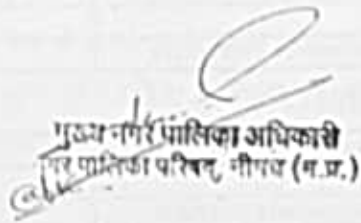 मुख्य नगर पालिका अधिकारी
नगर पालिका परिषद, नीमच (म.प्र.)